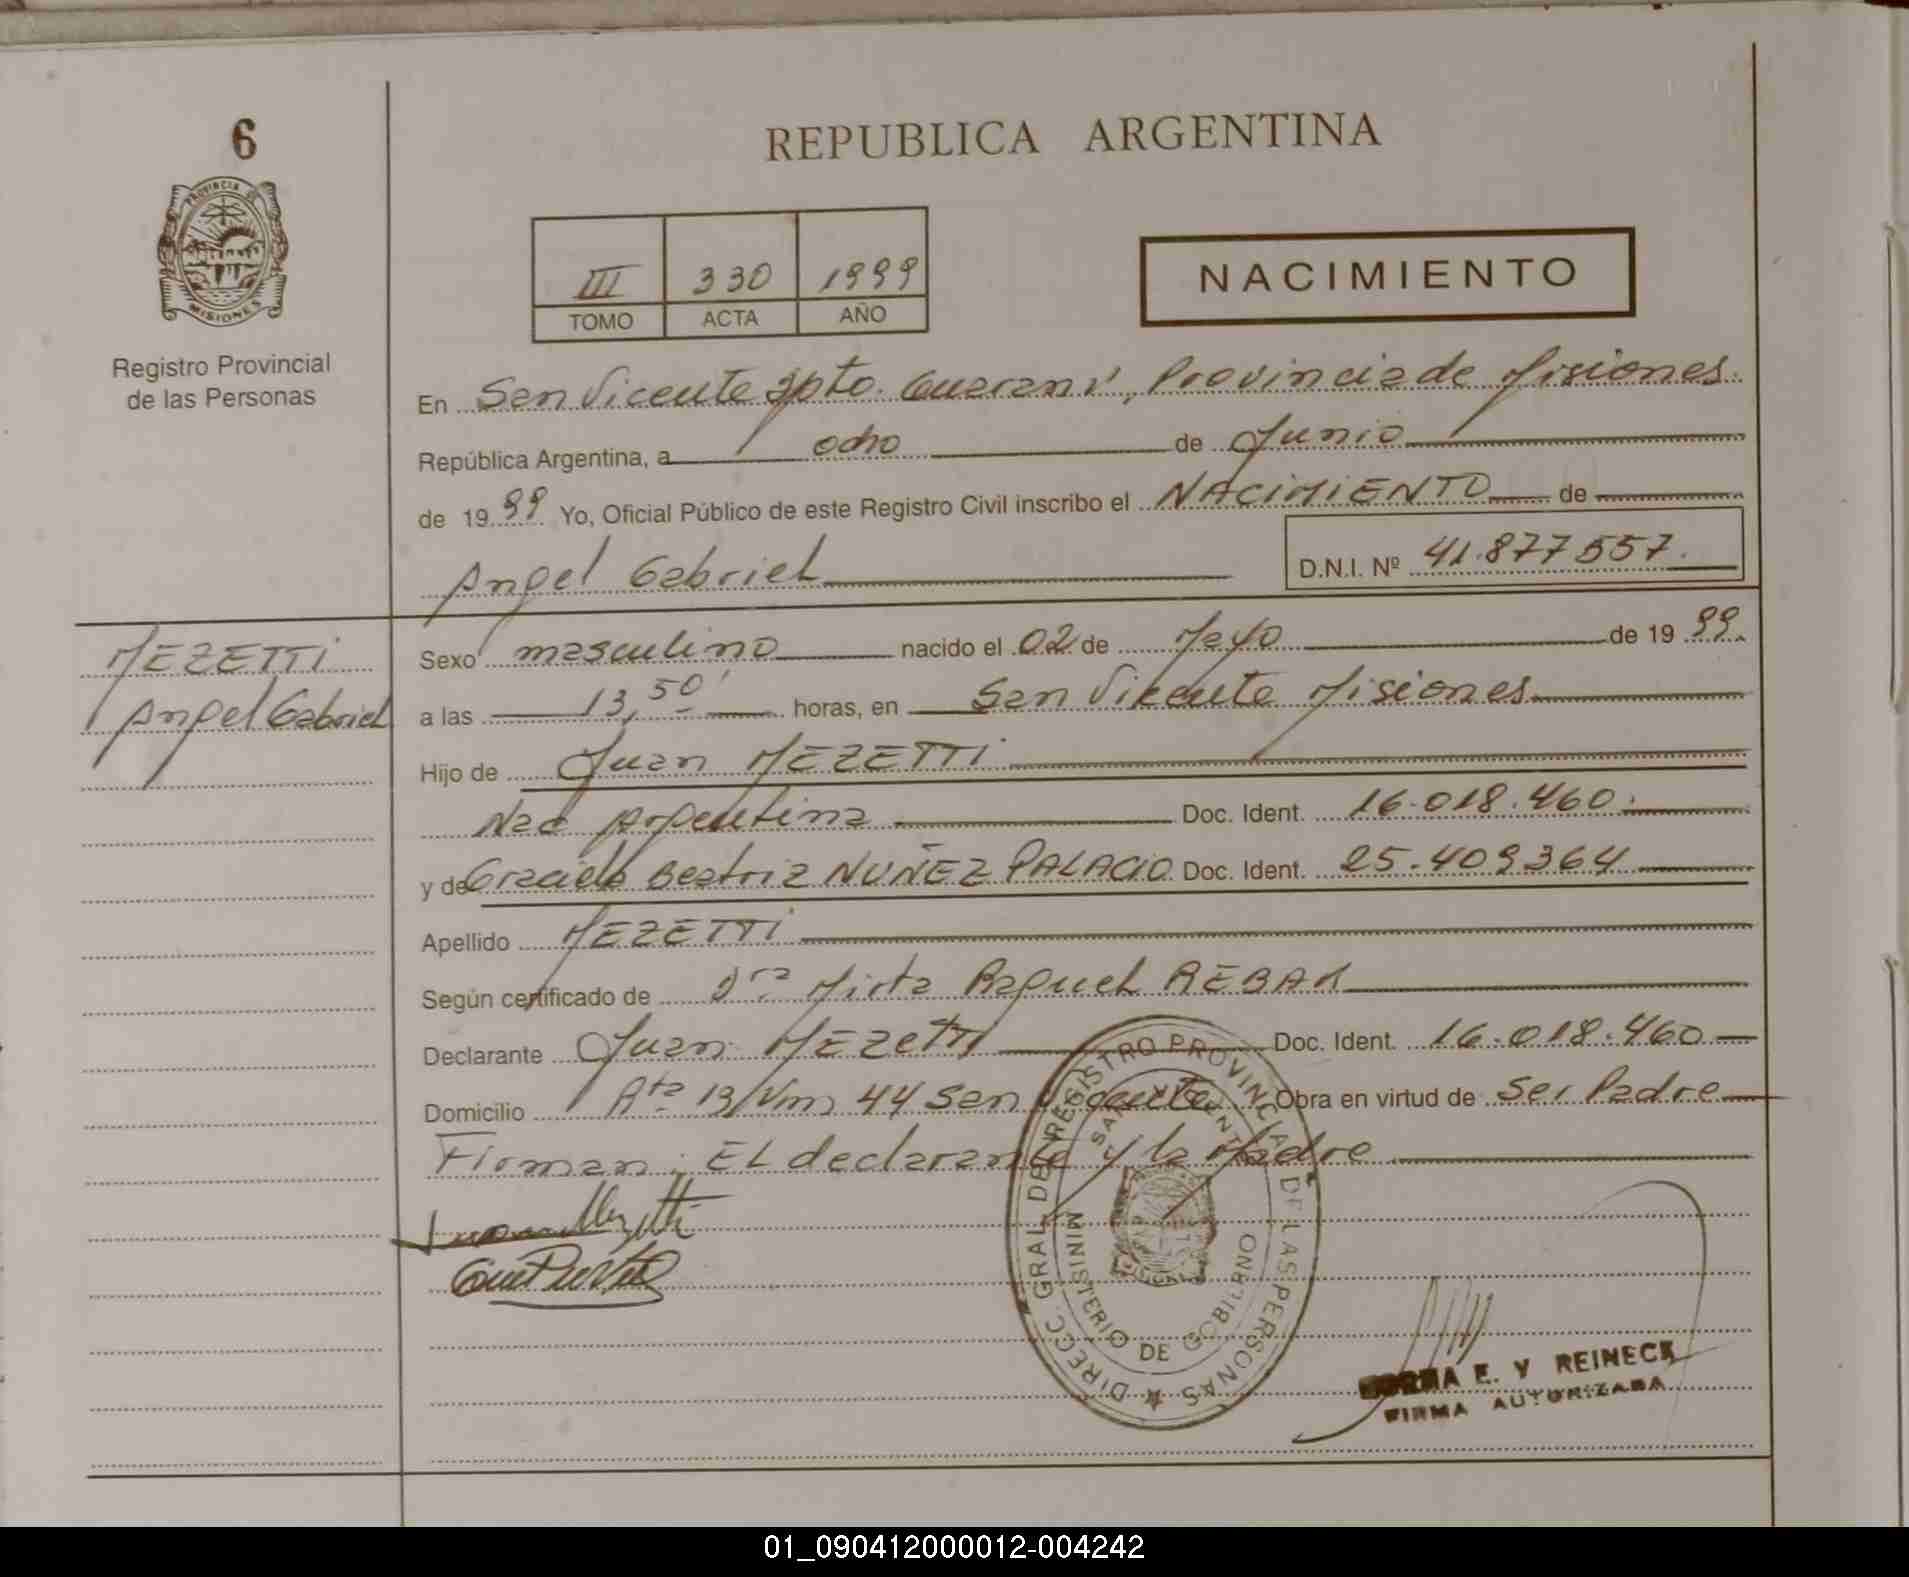 6
PROVINCIA DE
MISIONES
Registro Provincial
de las Personas
REPUBLICA ARGENTINA
III 330 1999
TOMO ACTA AÑO
NACIMIENTO
En San Vicente Dpto. Guaraní, Provincia de Misiones.
República Argentina, a ocho de Junio
de 1999 Yo, Oficial Público de este Registro Civil inscribo el NACIMIENTO de
Angel Gabriel D.N.I. Nº 41.877557.
MEZETTI
Angel Gabriel
Sexo masculino nacido el 02 de Mayo de 1999.
a las 13,50' horas, en San Vicente Misiones
Hijo de Juan MEZETTI
Nac Argentina Doc. Ident. 16.018.460.
y de Graciela Beatriz NUÑEZ PALACIO Doc. Ident. 25.409364
Apellido MEZETTI
Según certificado de Dra Mirta Raquel
Declarante Juan MEZETTI Doc. Ident. 16.018.460
Domicilio Rta 13 Km 44 San Vicente Obra en virtud de Ser Padre
Firman: EL declarante y la Madre
DIRECC. GRAL. DEL REGISTRO PROVINCIAL DE LAS PERSONAS
SAN VICENTE
MINISTERIO DE GOBIERNO
E. Y REINECK
FIRMA AUTORIZADA
01_090412000012-004242